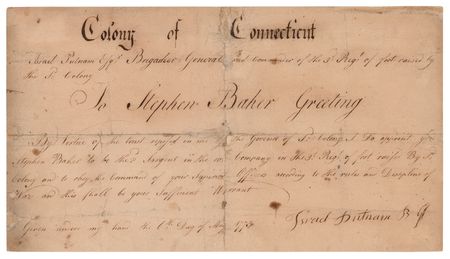 Colony of Connecticut
Israel Putnam Esqr Brigadier General and Commander of the 3d Regt of foot raised by
the Sd Colony
To Stephen Baker Greeting
By Vertue of the trust reposed in me by the Govenor of Sd Colony I Do appoint you
Stephen Baker to be the Sergent in the Company in the 3d Regt of foot raised By Sd
Colony and to obey the Command of your Superior Officers according to the rules and Discipline of
War and this shall be your Sufficient Warrant
Given under my hand the 6th Day of May
Israel Putnam B G